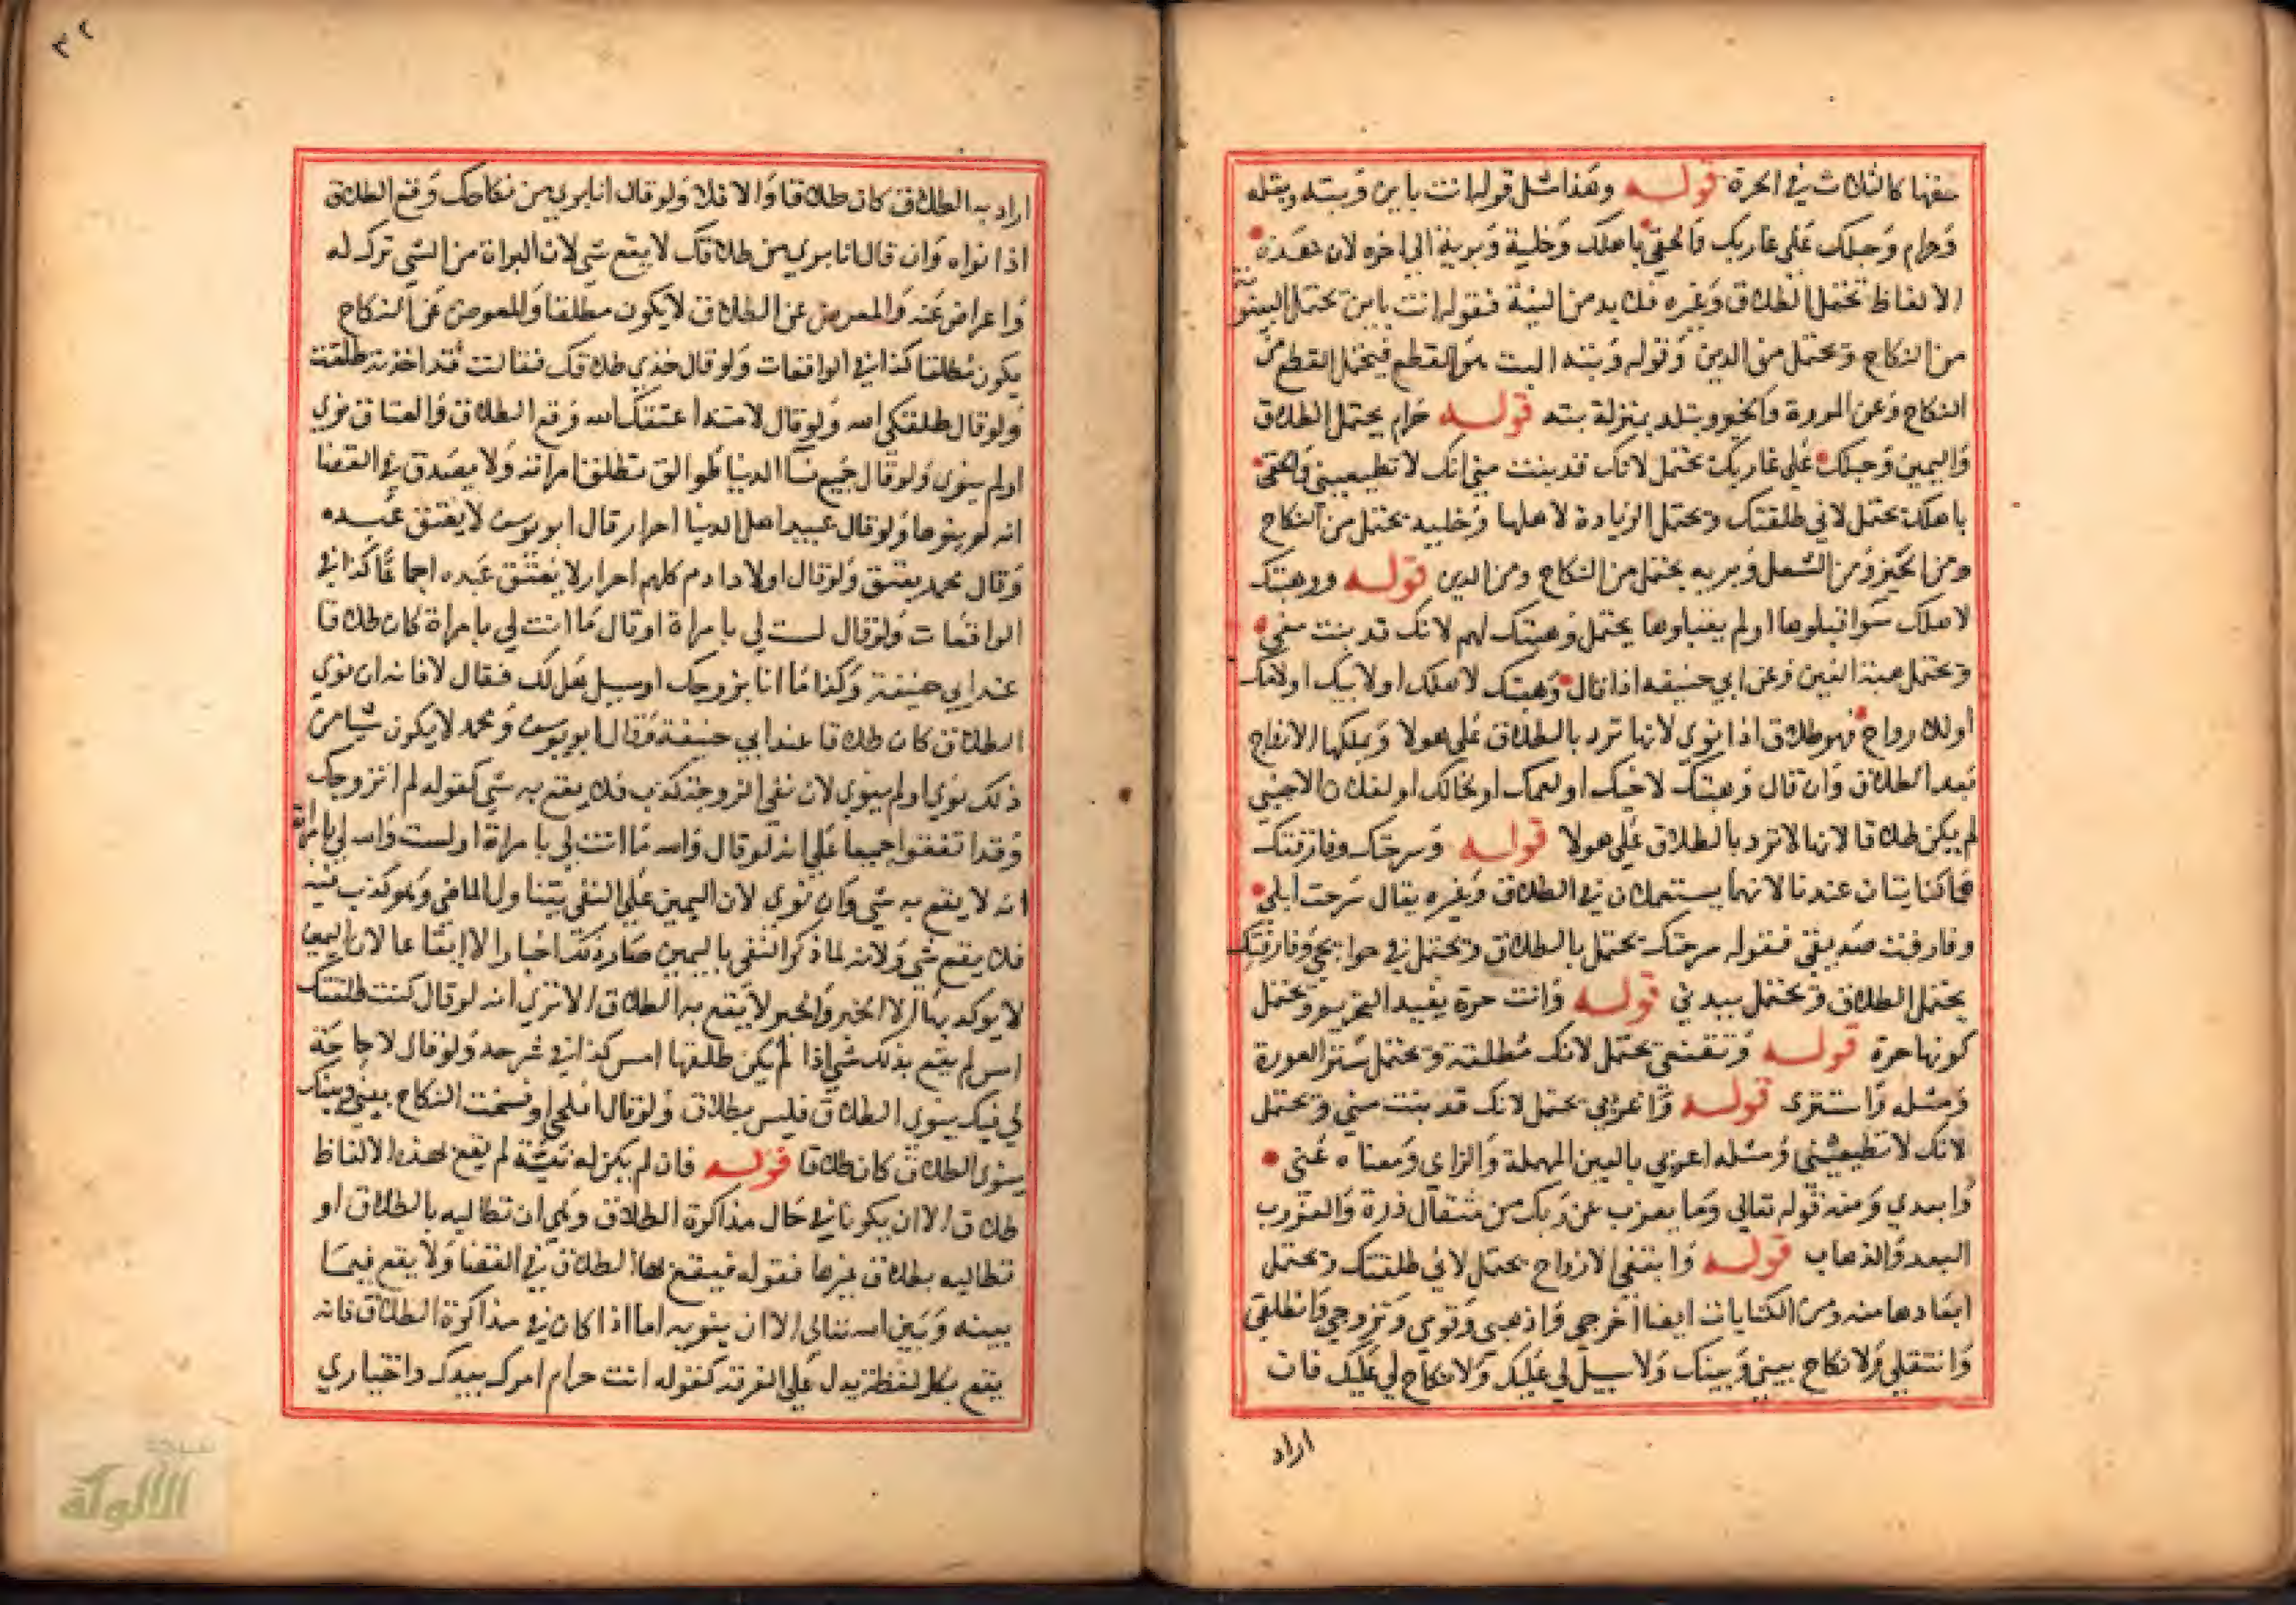 حقها كالثلاث في الحرة قوله وهذا مثل قوله انت باين وبتة وبتله
وحرام وحبلك على غاربك والحقي باهلك وخلية وبرية الى اخره لان هذه
الالفاظ تحتمل الطلاق وغيره فلا بد من النية فقوله انت باين تحتمل البينونة
من النكاح وتحتمل من الدين وقوله وبتة البت هو القطع فيحتمل القطع من
النكاح وعن المروة والخير وبتله بمنزلة بته قوله حرام يحتمل الطلاق
واليمين وحبلك على غاربك تحتمل لانك قد بنت مني انك لا تطيعيني والحقي
باهلك تحتمل لاني طلقتك وتحتمل الزيادة لاهلها وخليه تحتمل من النكاح
ومن الخير ومن الشغل وبريه يحتمل من النكاح ومن الدين قوله ووهبتك
لاهلك سوا قبلوها او لم يقبلوها يحتمل وهبتك لهم لانك قد بنت مني
وتحتمل هبة العين وعن ابي حنيفه اذا قال وهبتك لاهلك او لابيك او لامك
او للازواج فهو طلاق اذا نوى لانها ترد بالطلاق على هولا ويملكها الازواج
بعد الطلاق وان قال وهبتك لاخيك او لعمك او لخالك او لفلان الاجنبي
لم يكن طلاقا لانها لا ترد بالطلاق على هولا قوله وسرحتك وفارقتك
فهما كنايتان عندنا لانهما يستعملان في الطلاق وغيره يقال سرحت ابلي
وفارقت صديقي فقوله سرحتك يحتمل بالطلاق وتحتمل في حوايجي وفارقتك
يحتمل الطلاق وتحتمل ببدني قوله وانت حرة يفيد التحريم وتحتمل
كونها حرة قوله وتقنعي تحتمل لانك مطلقة وتحتمل ستر العورة
ومثله واستتري قوله واغربي تحتمل لانك قد بنت مني وتحتمل
لانك لا تطيعيني ومثله اعزبي بالعين المهملة والزاي ومعناه غيبي
وابعدي ومنه قوله تعالى وما يعزب عن ربك من مثقال ذرة والعزوب
البعد والذهاب قوله وابتغي الازواج يحتمل لاني طلقتك وتحتمل
ابعادها منه ومن الكنايات ايضا اخرجي واذهبي وقومي وتزوجي وانطلقي
وانتقلي ولا نكاح بيني وبينك ولا سبيل لي عليك ولا نكاح لي عليك فان
اراد
٣٢
اراد به الطلاق كان طلاقا والا فلا ولو قال انا بريء من نكاحك وقع الطلاق
اذا نواه وان قال انا بريء من طلاقك لا يقع شي لان البراة من الشي ترك له
واعراض عنه والمعرض عن الطلاق لا يكون مطلقا والمعرض عن النكاح
يكون مطلقا كذا في الواقعات ولو قال خذي طلاقك فقالت قد اخذته طلقت
ولو قال طلقك الله ولو قال لامته اعتقك الله وقع الطلاق والعتاق نوى
او لم ينوى ولو قال جميع نسا الدنيا طوالق تطلق امراته ولا يصدق في القضا
انه لم ينوها ولو قال عبيد اهل الدنيا احرار قال ابو يوسف لا يعتق عبده
وقال محمد يعتق ولو قال اولاد ادم كلهم احرار لا يعتق عبده اجماعا كذا في
الواقعات ولو قال لست لي بامراة او قال ما انت لي بامراة كان طلاقا
عند ابي حنيفة وكذا ما انا بزوجك او سيل هل لك فقال لا فانه ان نوى
الطلاق كان طلاقا عند ابي حنيفة وقال ابو يوسف ومحمد لا يكون شيا من
ذلك نوى او لم ينوى لان نفي الزوجية كذب فلا يقع به شي كقوله لم اتزوجك
وقد اتفقوا جميعا على انه لو قال والله ما انت لي بامراة او لست والله لي بامراة
انه لا يقع به شي وان نوى لان اليمين على النفي يتناول الماضي وهو كذب فيه
فلا يقع شي ولانه لما ذكر النفي باليمين صار ذلك اخبارا لا ايقاعا لان اليمين
لا يوكد بها الا الخبر والخبر لا يقع به الطلاق الا ترى انه لو قال كنت طلقتك
امس لم يقع بذلك شي اذا لم يكن طلقها امس كذا في شرحه ولو قال لا حاجة
لي فيك ينوي الطلاق فليس بطلاق ولو قال افلحي او فسخت النكاح بيني وبينك
ينوي الطلاق كان طلاقا قوله فان لم يكن له نية لم يقع بهذه الالفاظ
طلاق الا ان يكونا في حال مذاكرة الطلاق وهي ان تطالبه بالطلاق او
تطالبه بطلاق غيرها فقوله فيقع بها الطلاق في القضا ولا يقع فيما
بينه وبين الله تعالى الا ان ينويه اما اذا كان في مذاكرة الطلاق فانه
يقع بكل لفظة يدل على الفرقة كقوله انت حرام امرك بيدك واختياري